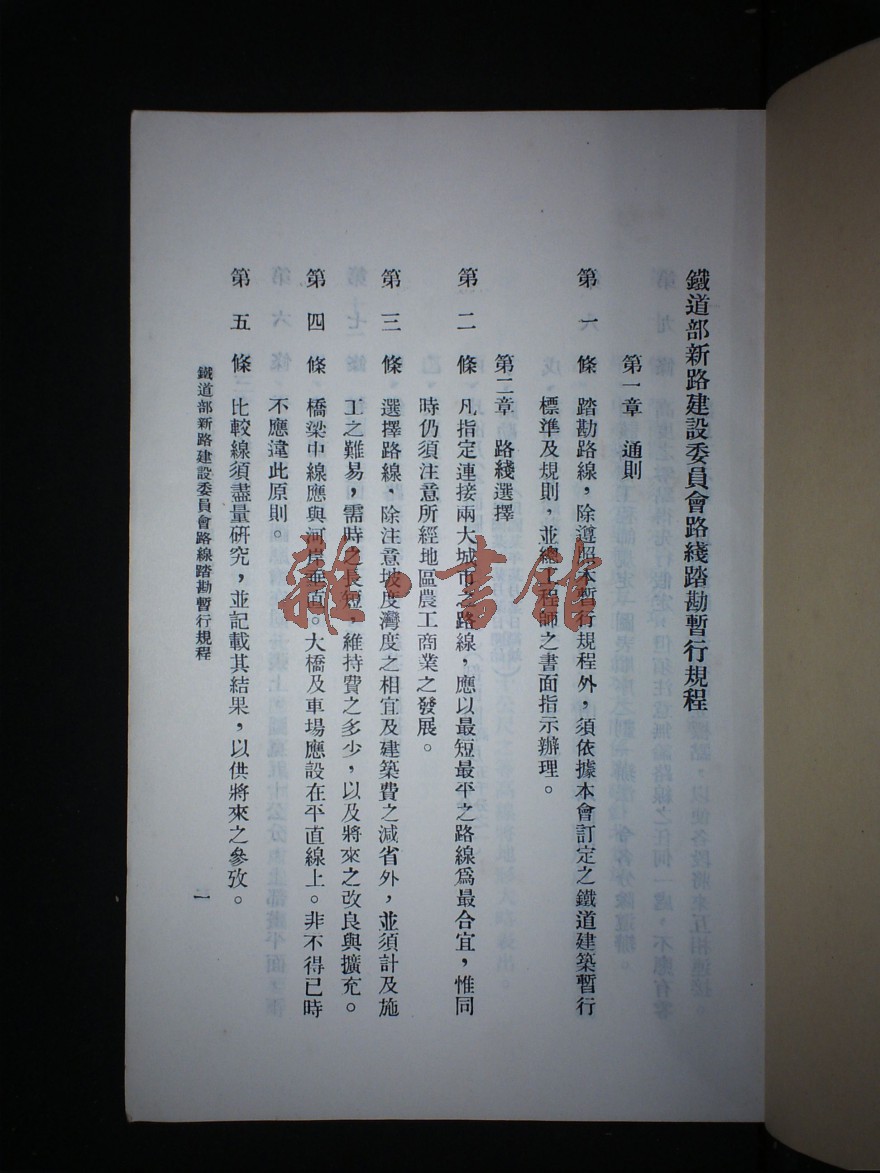 鐵道部新路建設委員會路綫踏勘暫行規程
第一章 通則
第一條 踏勘路線，除遵照本暫行規程外，須依據本會訂定之鐵道建築暫行
標準及規則，並總工程師之書面指示辦理。
第二章 路綫選擇
第二條 凡指定連接兩大城市之路線，應以最短最平之路線爲最合宜，惟同
時仍須注意所經地區農工商業之發展。
第三條 選擇路線，除注意坡度灣度之相宜及建築費之減省外，並須計及施
工之難易，需時之長短，維持費之多少，以及將來之改良與擴充。
第四條 橋梁中線應與河岸垂直。大橋及車場應設在平直線上。非不得已時
不應違此原則。
第五條 比較線須盡量研究，並記載其結果，以供將來之參攷。
鐵道部新路建設委員會路線踏勘暫行規程
一
雜·書館